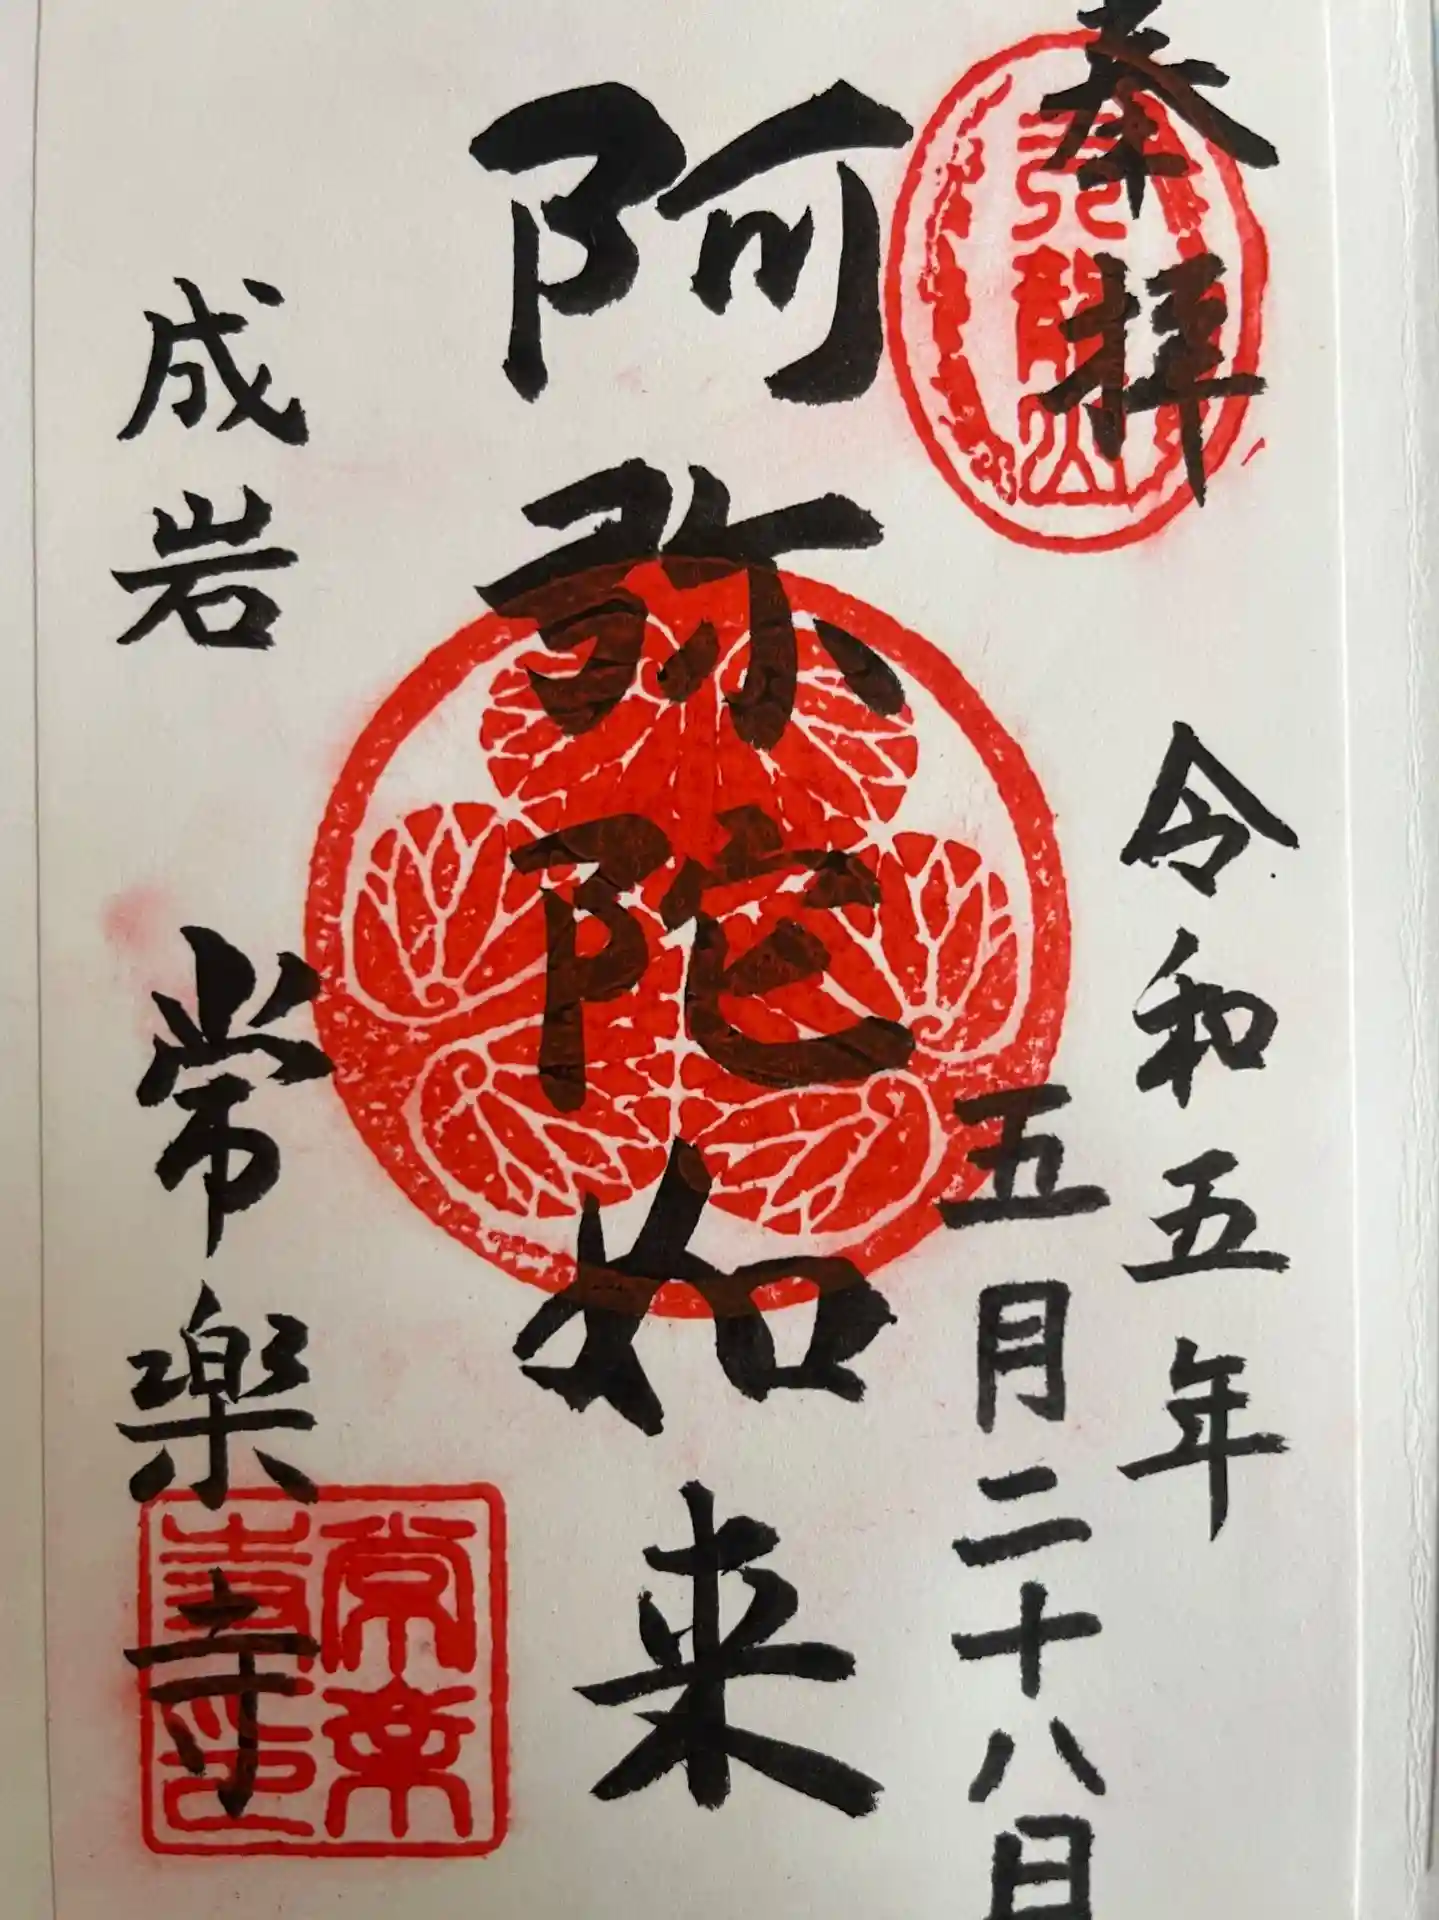 奉拝
令和五年
五月二十八日
天龍山
阿弥陀如来
成岩
常楽寺
常楽
寺印